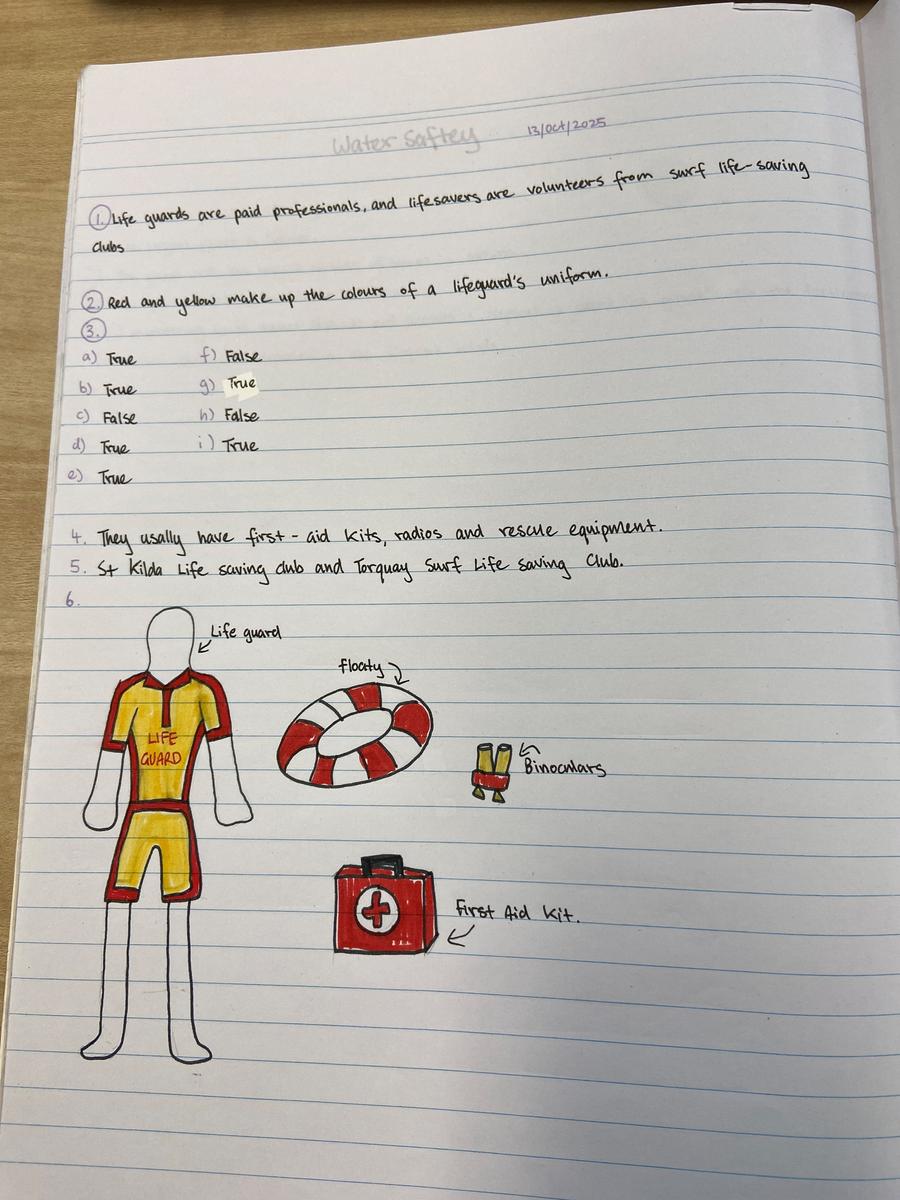 Water Saftey 13/Oct/2025
1. Life guards are paid professionals, and lifesavers are volunteers from surf life-saving
clubs
2. Red and yellow make up the colours of a lifeguard's uniform.
3.
a) True f) False
b) True g) True
c) False h) False
d) True i) True
e) True
4. They usally have first-aid kits, radios and rescue equipment.
5. St Kilda Life saving club and Torquay Surf Life Saving Club.
6.
Life guard
floaty
LIFE
GUARD
Binoculars
First Aid Kit.